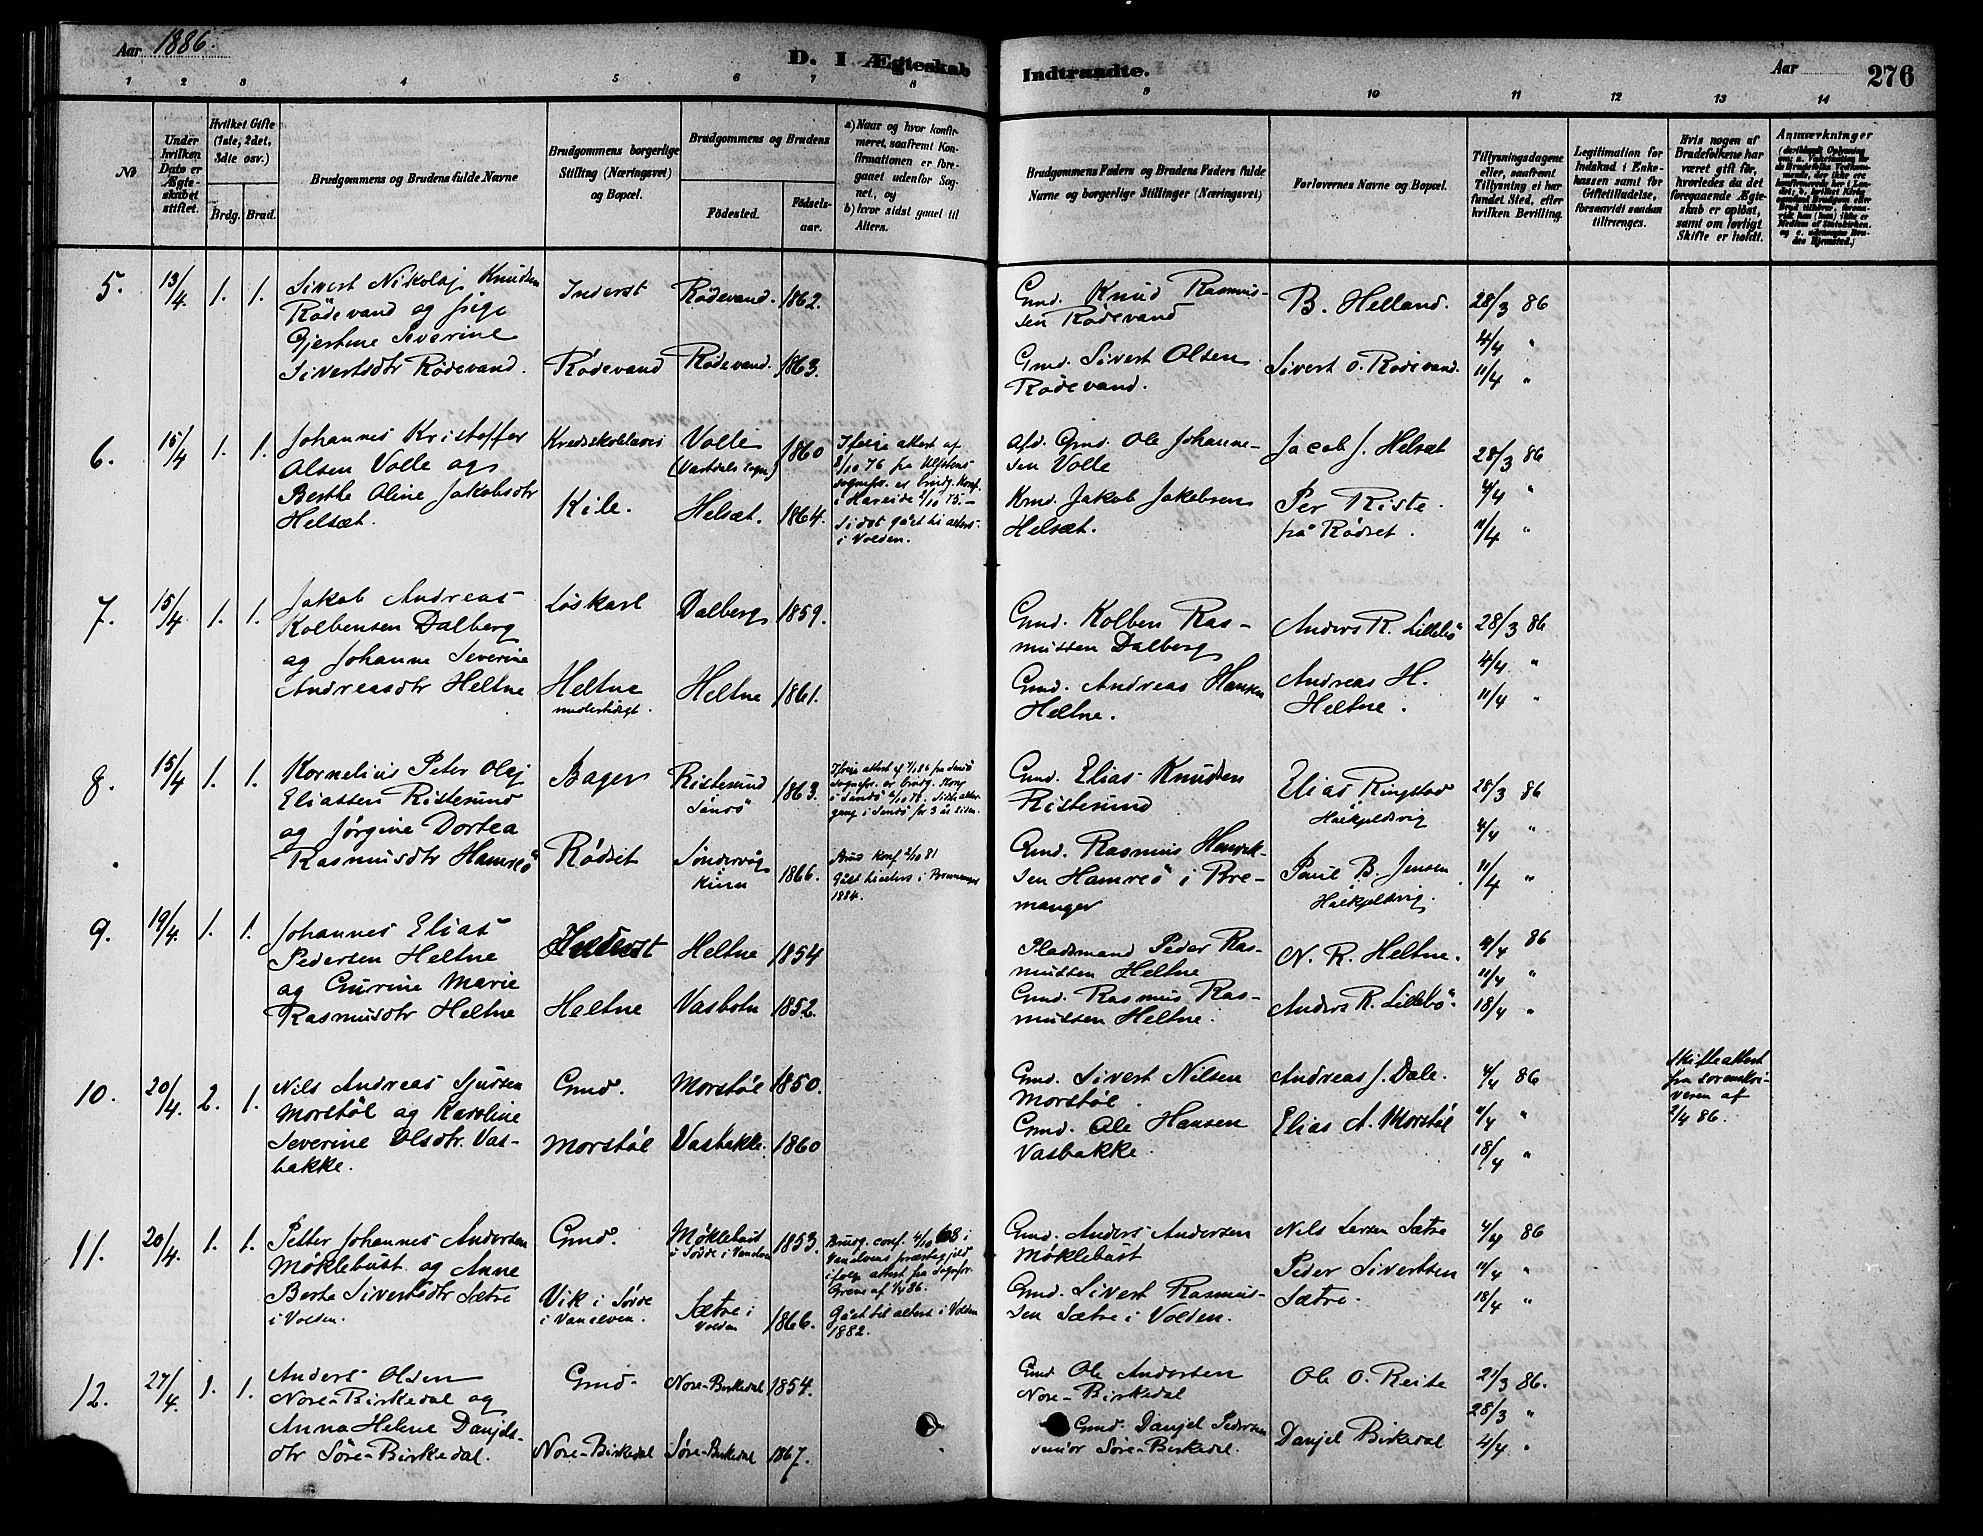 Aar 1886.
D. I Ægteskab
Indtraadte.
Aar
276
1 2 3 4 5 6 7 8 9 10 11 12 13 14
No
Under hvilken Dato er Ægteskabet stiftet.
Hvilket Gifte (1ste, 2det, 3die osv.)
Brdg. Brud.
Brudgommens og Brudens fulde Navne
Brudgommens borgerlige Stilling (Næringsvei) og Bopæl.
Brudgommens og Brudens
Födested.
Födsels-aar.
a) Naar og hvor konfirmeret, saafremt Konfirmationen er foregaaet udenfor Sognet, og
b) hvor sidst gaaet til Alters.
Brudgommens Faders og Brudens Faders fulde Navne og borgerlige Stillinger (Næringsvei)
Forlovernes Navne og Bopæl.
Tillysningsdagene eller, saafremt Tillysning ei har fundet Sted, efter hvilken Bevilling.
Legitimation for Indskud i Enkekassen samt for Giftetilladelse, forsaavidt saadan tiltrænges.
Hvis nogen af Brudefolkene har været gift før, hvorledes da det foregaaende Ægteskab er opløst, samt om lovligt Skifte er holdt.
Anmærkninger
5. 13/4 1. 1.
Sivert Nikolaj Knudsen
Rödevand og pige
Gjertine Severine
Sivertsdtr Rödevand.
Inderst
Rödevand
Rödevand. 1862.
Rödevand. 1863.
Gmd. Knud Rasmus-
sen Rödevand
Gmd. Sivert Olsen
Rödevand.
B. Helland.
Sivert O. Rödevand.
28/3 86
4/4 "
11/4 "
6. 15/4 1. 1.
Johannes Kristoffer
Olsen Volle og
Berthe Oline Jakobsdtr
Helsæt.
Kredsskolelærer
Kile.
Volle
(Vartdals sogn) 1860
Helsæt. 1864.
Ifølge attest af
fra Ulfstens
sognepr. er brudg. konf.
i Hareide 3/10 75.-
Sidst gået til alters
i Volden.
Afd. Gmd. Ole Johanne-
sen Volle
Kmd. Jakob Jakobsen
Helsæt.
Jacob J. Helsæt
Per Riste
på Rödset.
28/3 86
4/4 "
11/4 "
7. 15/4 1. 1.
Jakob Andreas
Kolbensen Dalberg
og Johanne Severine
Andreasdtr Heltne
Löskarl
Heltne
midlertidigt.
Dalberg 1859.
Heltne 1861.
Gmd. Kolben Ras-
mussen Dalberg
Gmd. Andreas Hansen
Heltne.
Anders R. Lillebö
Andreas H.
Heltne.
28/3 86
4/4 "
11/4 "
8. 15/4 1. 1.
Kornelius Peter Olaj
Eliassen Ristesund
og Jörgine Dortea
Rasmusdtr Hamreö
Bager
Rödset
Ristesund
Sandö 1863.
Söndervåg
Kinn 1866.
Ifölge attest af fra Sandö
sognepr. er brudg. konf.
i Sandö
gang i Sandö for 3 år siden.
Brud konf. 2/10 81
Gået til alters i Bremanger
1884.
Gmd. Elias Knudsen
Ristesund
Gmd. Rasmus Henrik-
sen Hamreö i Bre-
manger
Elias Ringstad
Haukjeldsvig
Paul B. Jensen
Haukjeldsvig.
28/3 86
4/4 "
11/4 "
9. 19/4. 1. 1.
Johannes Elias
Pedersen Heltne
og Gurine Marie
Rasmusdtr Heltne
Inderst
Heltne
Heltne 1854
Vasbotn 1852.
Pladsmand Peder Ras-
mussen Heltne
Gmd. Rasmus Ras-
mussen Heltne.
N. R. Heltne.
Anders R. Lillebö.
4/4 86
11/4 "
18/4 "
10. 20/4. 2. 1.
Nils Andreas Sjursen
Morstöl og Karoline
Severine Olsdtr. Vas-
bakke.
Gmd.
Morstöl
Morstöl 1850.
Vasbakke. 1860
Gmd. Sivert Nilsen
Morstöl.
Gmd. Ole Hansen
Vasbakke.
Andreas J. Dale.
Elias A. Morstöl
4/4 86
11/4 "
18/4 "
Skifteattest
fra sorenskri-
veren af
2/4 86.
11. 20/4. 1. 1.
Petter Johannes Andersen
Möklebust og Anne
Berte Sivertsdtr Sætre
i Volden.
Gmd.
Vik i Sövde
i Vanelven.
Möklebust
i Sövde i Vanelven 1853.
Sætre i
Volden 1866.
Brudg. conf. 4/10 68 i
Vanelvens præstegjeld
ifölge attest fra sognepr.
Greve af 1/4 86.
Gået til alters i Volden
1882.
Gmd. Anders Andersen
Möklebust
Gmd. Sivert Rasmus-
sen Sætre i Volden.
Nils Larsen Sætre
Peder Sivertsen
Sætre.
4/4 86
11/4 "
18/4 "
12. 27/4. 1. 1.
Anders Olsen
Nore-Birkedal og
Anna Helene Danjels-
dtr Söre-Birkedal.
Gmd.
Nore-Birkedal
Nore-Birkedal 1854.
Söre-Birkedal 1867.
Gmd Ole Andersen
Nore-Birkedal
Gmd. Danjel Pedersen
senior Söre-Birkedal.
Ole O. Reite
Danjel Birkedal
21/3 86.
28/3 "
4/4 "